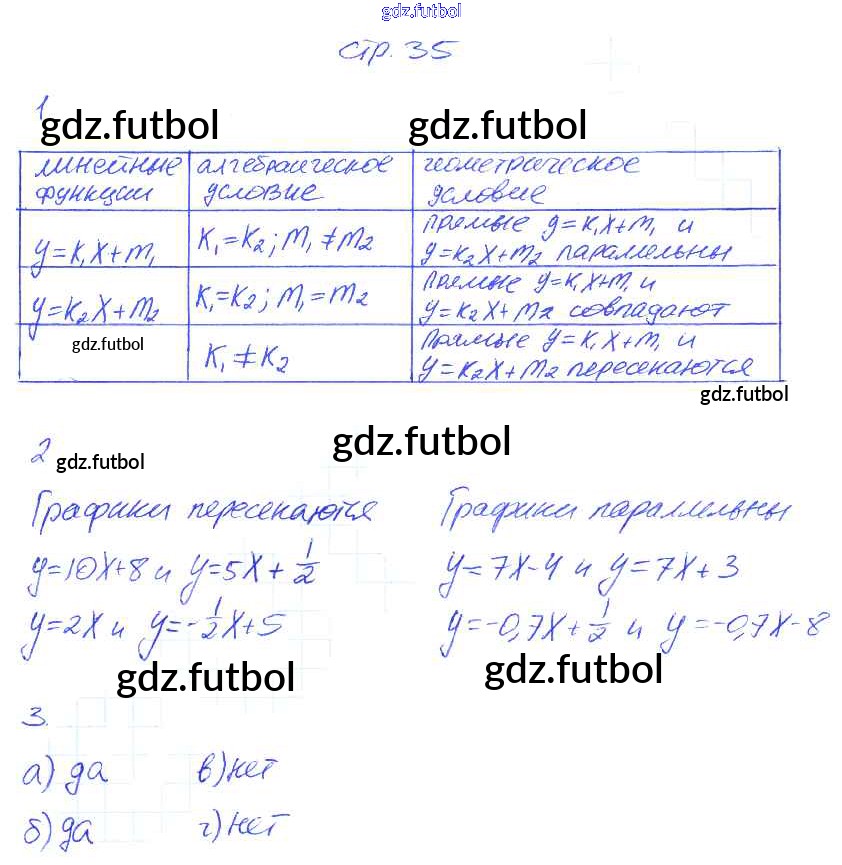 gdz.futbol
стр. 35
1
gdz.futbol gdz.futbol
линейные функции алгебраическое условие геометрическое условие
y=k₁x+m₁ k₁=k₂; m₁≠m₂ прямые y=k₁x+m₁ и
y=k₂x+m₂ параллельны
y=k₂x+m₂ k₁=k₂; m₁=m₂ прямые y=k₁x+m₁ и
y=k₂x+m₂ совпадают
gdz.futbol k₁≠k₂ прямые y=k₁x+m₁ и
y=k₂x+m₂ пересекаются
gdz.futbol
gdz.futbol
2 gdz.futbol
Графики пересекаются
y=10x+8 и y=5x+1/2
y=2x и y=-1/2x+5
Графики параллельны
y=7x-4 и y=7x+3
y=-0,7x+1/2 и y=-0,7x-8
gdz.futbol gdz.futbol
3.
а) да в) нет
б) да г) нет